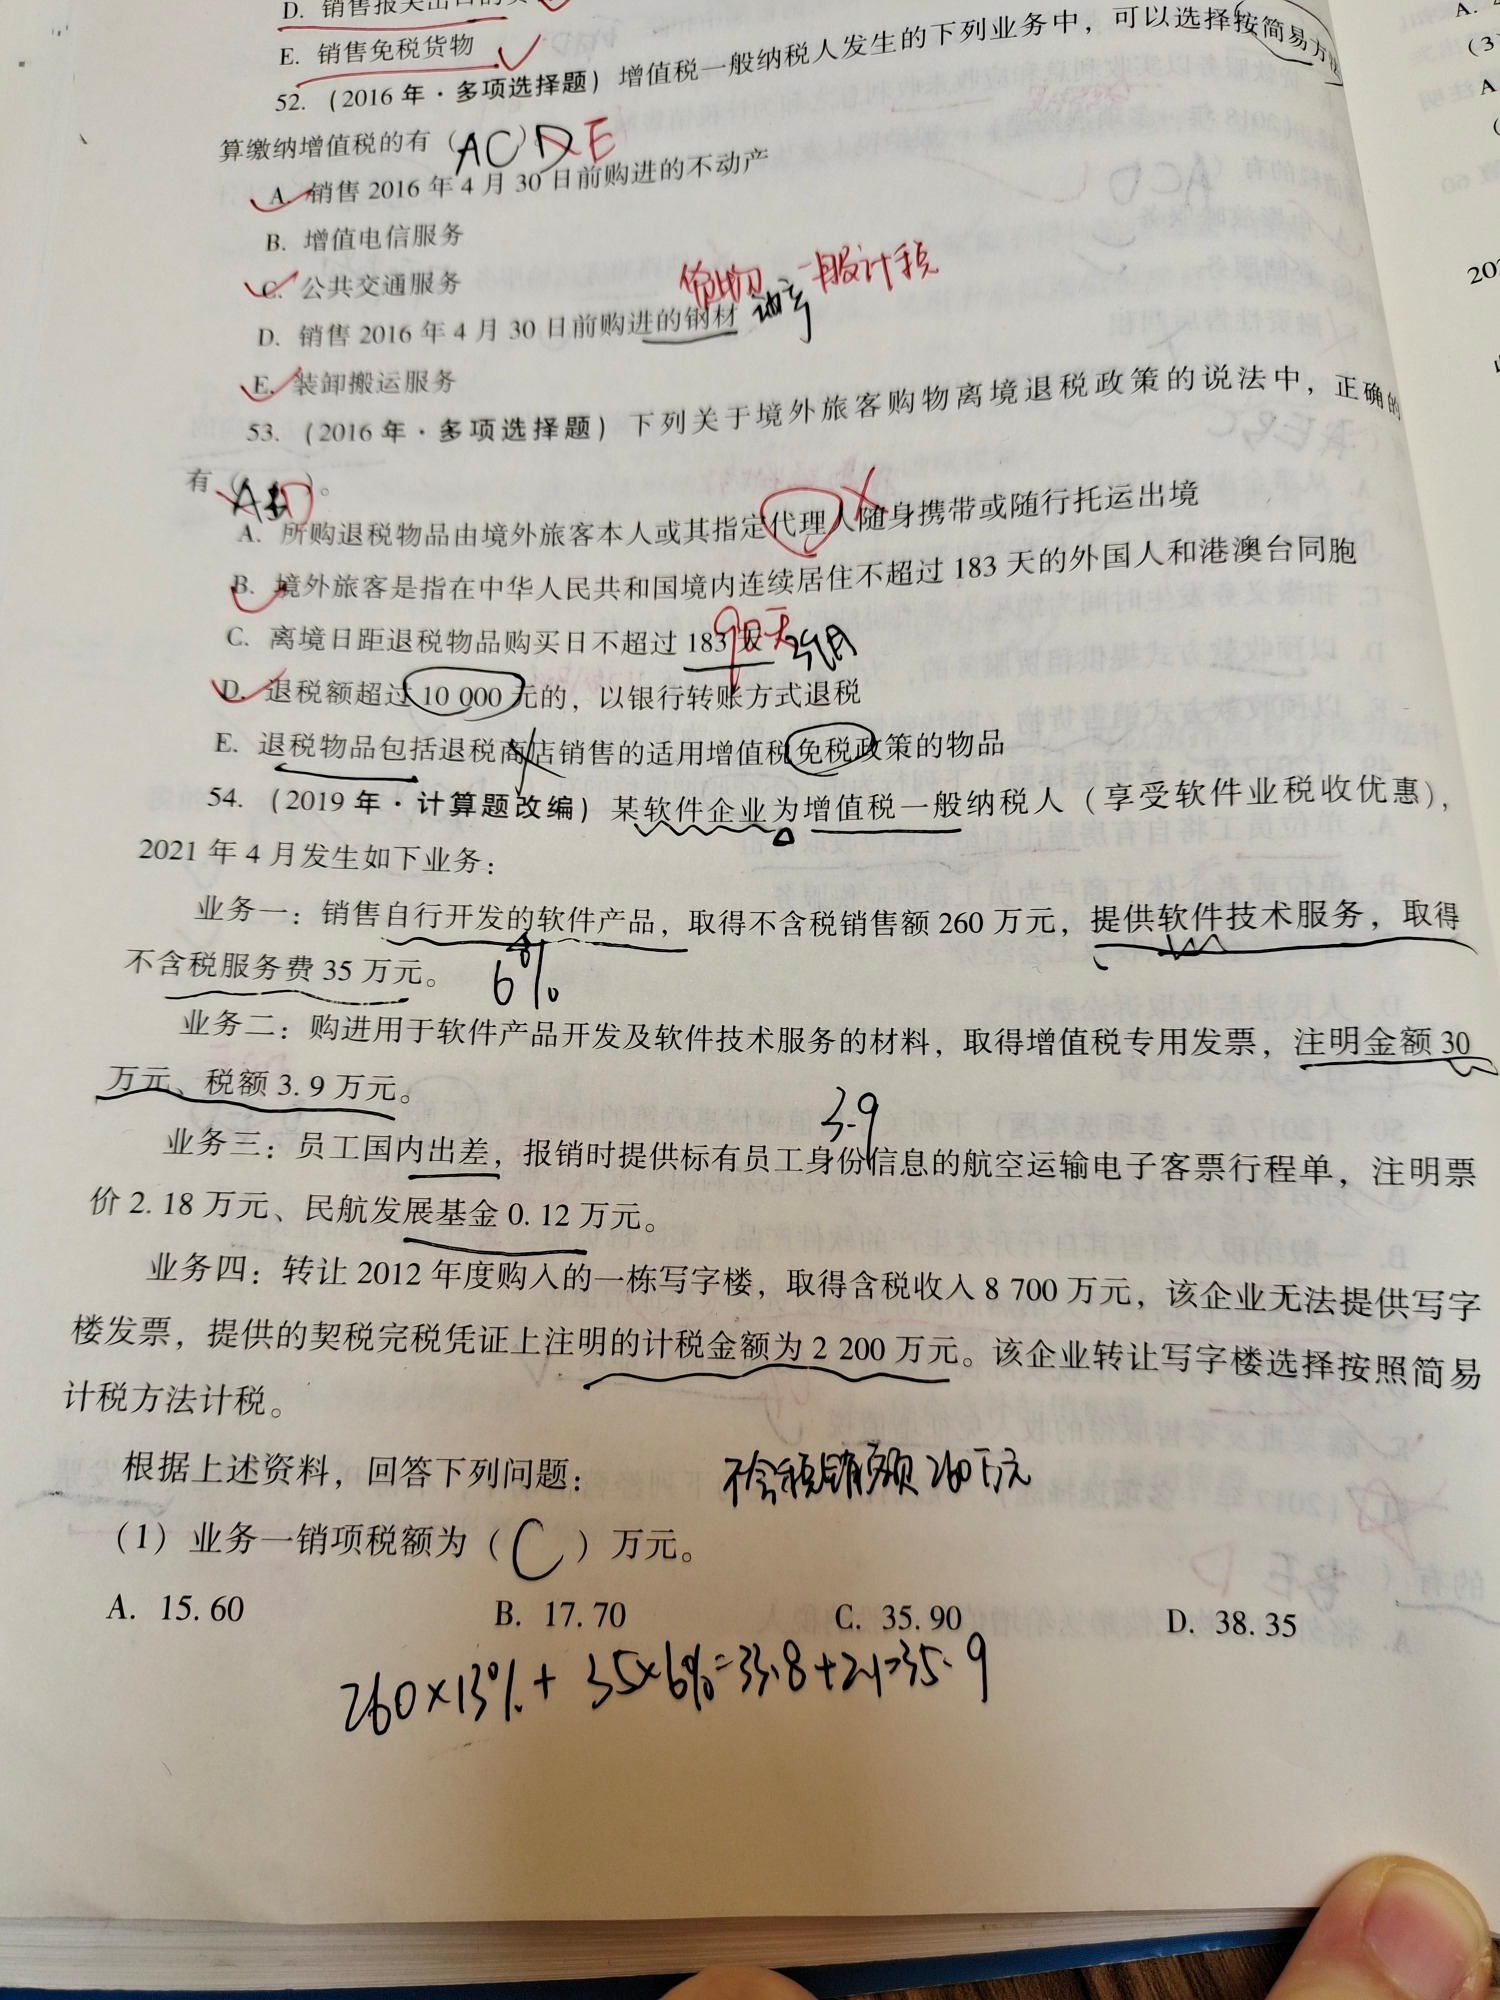 D. 销售报关出口的货
E. 销售免税货物
52. (2016 年 · 多项选择题) 增值税一般纳税人发生的下列业务中，可以选择按简易方法
算缴纳增值税的有 ( ACD E
A. 销售 2016 年 4 月 30 日前购进的不动产
B. 增值电信服务
C. 公共交通服务
货物 动产 一般计税
D. 销售 2016 年 4 月 30 日前购进的钢材
E. 装卸搬运服务
53. (2016 年 · 多项选择题) 下列关于境外旅客购物离境退税政策的说法中，正确的
有 ( )。
A. 所购退税物品由境外旅客本人或其指定代理人随身携带或随行托运出境
B. 境外旅客是指在中华人民共和国境内连续居住不超过 183 天的外国人和港澳台同胞
C. 离境日距退税物品购买日不超过 183 天 90天 3个月
D. 退税额超过 10 000 元的，以银行转账方式退税
E. 退税物品包括退税商店销售的适用增值税免税政策的物品
54. (2019 年 · 计算题改编) 某软件企业为增值税一般纳税人 (享受软件业税收优惠)，
2021 年 4 月发生如下业务：
业务一：销售自行开发的软件产品，取得不含税销售额 260 万元，提供软件技术服务，取得
不含税服务费 35 万元。
6%
业务二：购进用于软件产品开发及软件技术服务的材料，取得增值税专用发票，注明金额 30
万元、税额 3.9 万元。
3.9
业务三：员工国内出差，报销时提供标有员工身份信息的航空运输电子客票行程单，注明票
价 2.18 万元、民航发展基金 0.12 万元。
业务四：转让 2012 年度购入的一栋写字楼，取得含税收入 8 700 万元，该企业无法提供写字
楼发票，提供的契税完税凭证上注明的计税金额为 2 200 万元。该企业转让写字楼选择按照简易
计税方法计税。
根据上述资料，回答下列问题：
不含税销售额 260万元
(1) 业务一销项税额为 ( C ) 万元。
A. 15.60 B. 17.70 C. 35.90 D. 38.35
260×13%+ 35×6%=33.8+2.1=35.9